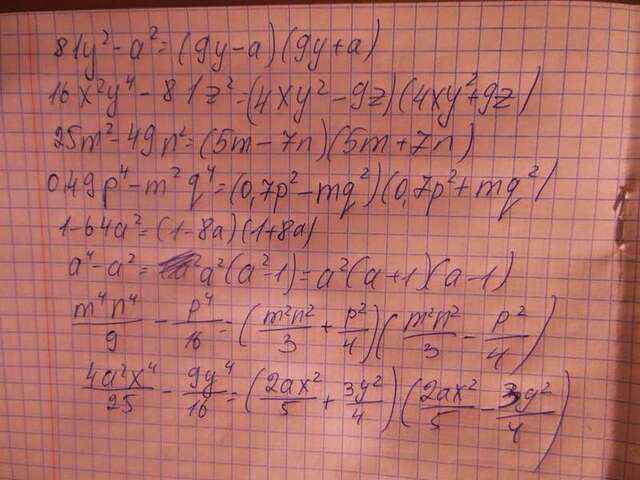 81y² - a² = (9y - a)(9y + a)
16x²y⁴ - 81z² - (4xy² - 9z)(4xy² + 9z)
25m² - 49n² = (5m - 7n)(5m + 7n)
0,49p⁴ - m²q⁴ = (0,7p² - mq²)(0,7p² + mq²)
1 - 64a² = (1 - 8a)(1 + 8a)
a⁴ - a² = a²(a² - 1) = a²(a + 1)(a - 1)
m⁴n⁴/9 - p⁴/16 = (m²n²/3 + p²/4)(m²n²/3 - p²/4)
4a²x⁴/25 - 9y⁴/16 = (2ax²/5 + 3y²/4)(2ax²/5 - 3y²/4)